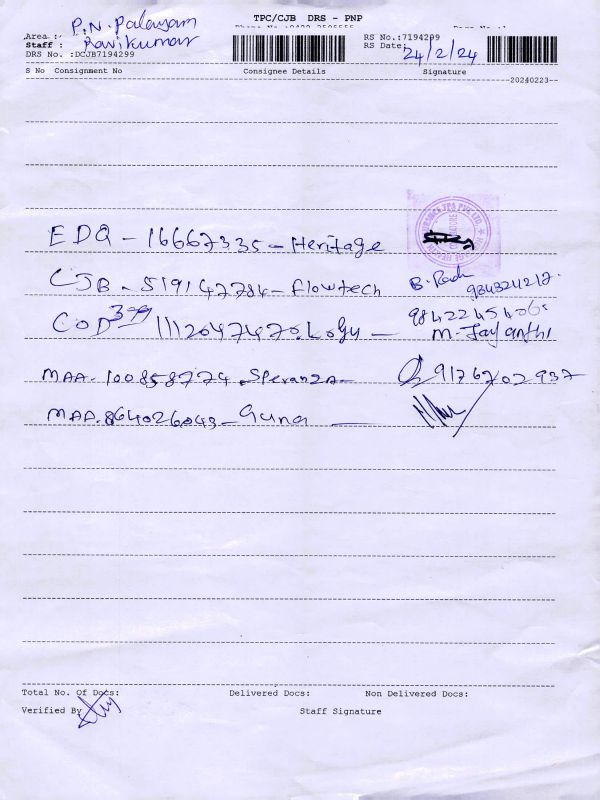 TPC/CJB DRS - PNP
P.N. Palayam
Area :
Staff : Ravikumar
RS No.:7194299
RS Date: 24/2/24
DRS No. :DCJB7194299
S No Consignment No Consignee Details Signature
20240223
EDQ - 16667335 - Heritage
CJB - 519147784 - Flowtech B.
COD 399 1112047470. Logu - M. Jayanthi
MAA. 100858774. Speranza - 9176702937
MAA. 864026043 - Guna -
Total No. Of Docs: Delivered Docs: Non Delivered Docs:
Verified By Staff Signature